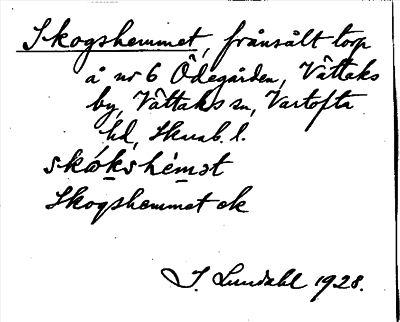 Skogshemmet, frånsålt torp
å nr 6 Ödegården, Vättaks
by, Vättaks sn, Vartofta
hd, Skarab. l.
skókshémət
Skogshemmet ek
I. Lundahl 1928.